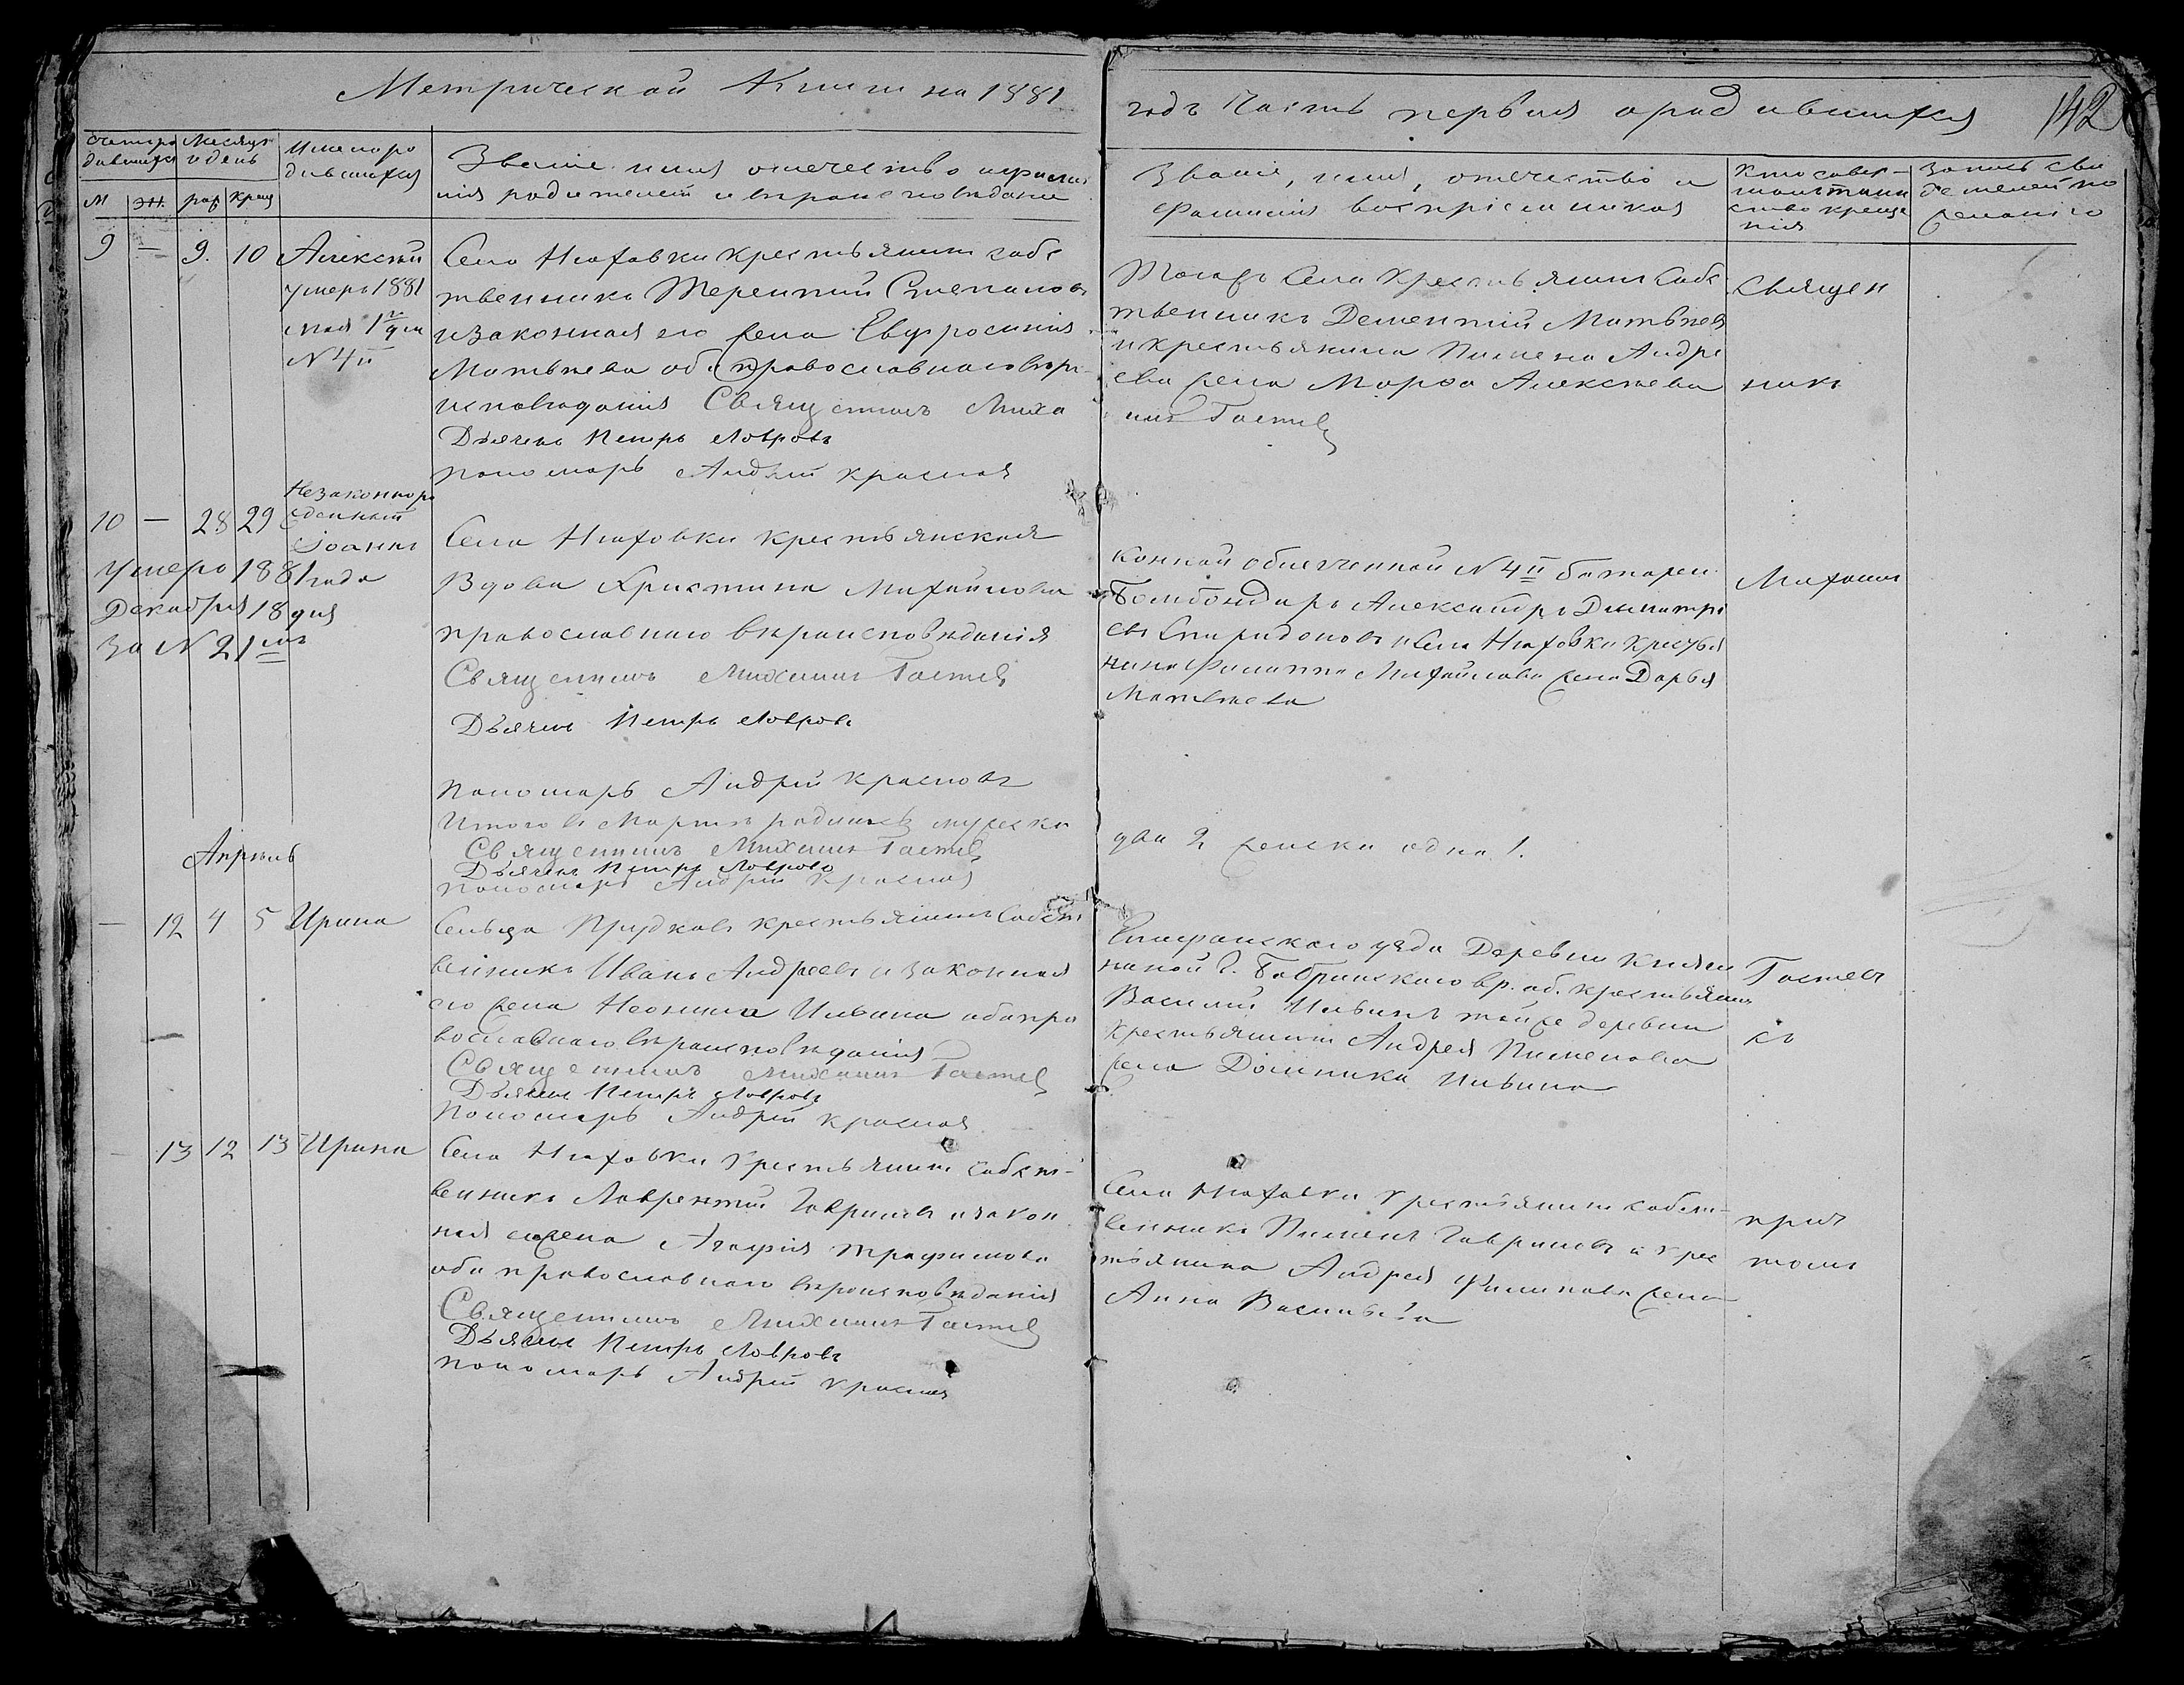 Метрической Книги на 1881
годъ Часть первая о родившихся
142
Счетъ ро
дившихся
Месяцъ
и день
Имена ро
дившихся
Званіе имя отечество и фамил
ія родителей и вероисповедани
М
Ж.
рож
крещ
Званіе, имя, отечество и
фамилія воспріемниковъ
Кто совер-
шалъ таин
ство креще
нія
Запись сви
детелей по
желанію
9 — 9. 10 Алексѣй
умеръ 1881
мая 1го дня
N 4й
Села Нюховки крестьянинъ собс
твенникъ Терентий Степановъ
и законная его жена Евфросиния
Матвѣева оба православнаго вѣро
исповѣдания Священникъ Миха
Дьячекъ Петръ Лавровъ
пономарь Андрѣй Красновъ
Тогожъ Села Крестьянинъ Собс
твенникъ Дементий Матвѣев
и крестьянина Пимена Андре
ева жена Марфа Алексѣева
илъ Гастев
Священ
никъ
10 — 28 29
Незаконнорo
жденный
Іоаннъ
Умеръ 1881 года
Декабря 18 дня
за N 21мъ
Села Нюховки крестьянская
Вдова Христина Михайлова
православнаго вѣроисповѣдания
Священникъ Михаилъ Гастев
Дьячекъ Петръ Лавровъ
пономарь Андрѣй Красновъ
конной облегченной N 4й батареи
Бомбондиръ Александръ Димитри
евъ Спиридоновъ и Села Нюховки крестья
нина Филиппа Михайлова жена Дарья
Матвѣева
Михаилъ
Итого в Мартѣ родилось мужеска
два 2 женска одна 1.
Священникъ Михаилъ Гастев
Дьячекъ Петръ Лавровъ
пономарь Андрѣй Красновъ
Апрѣль
— 12 4 5 Ирина
Сельца Прудковъ крестьянинъ Собст
венникъ Иванъ Андреевъ и законная
его жена Неонила Ильина оба пра
вославнаго вѣроисповѣдания
Священникъ Михаилъ Гастев
Дьячекъ Петръ Лавровъ
Пономарь Андрѣй Красновъ
Епифанскаго уезда Деревни Княги
ниной Г. Бобринскаго вр. об. крестьянинъ
Василий Ильинъ той же деревни
Крестьянина Андрея Пименова
жена Домника Ильина
Гастевъ
съ
— 13 12 13 Ирина
Села Нюховки Крестьянинъ собст-
венникъ Лаврентий Гавриловъ и закон
ная его жена Агафия Трофимова
оба православнаго вѣроисповѣдания
Священникъ Михаилъ Гастев
Дьячекъ Петръ Лавровъ
пономарь Андрѣй Красновъ
Села Нюховки Крестьянинъ собст-
венникъ Пименъ Гавриловъ и крес
тьянина Андрея Филипова жена
Анна Васильева
прич
томъ